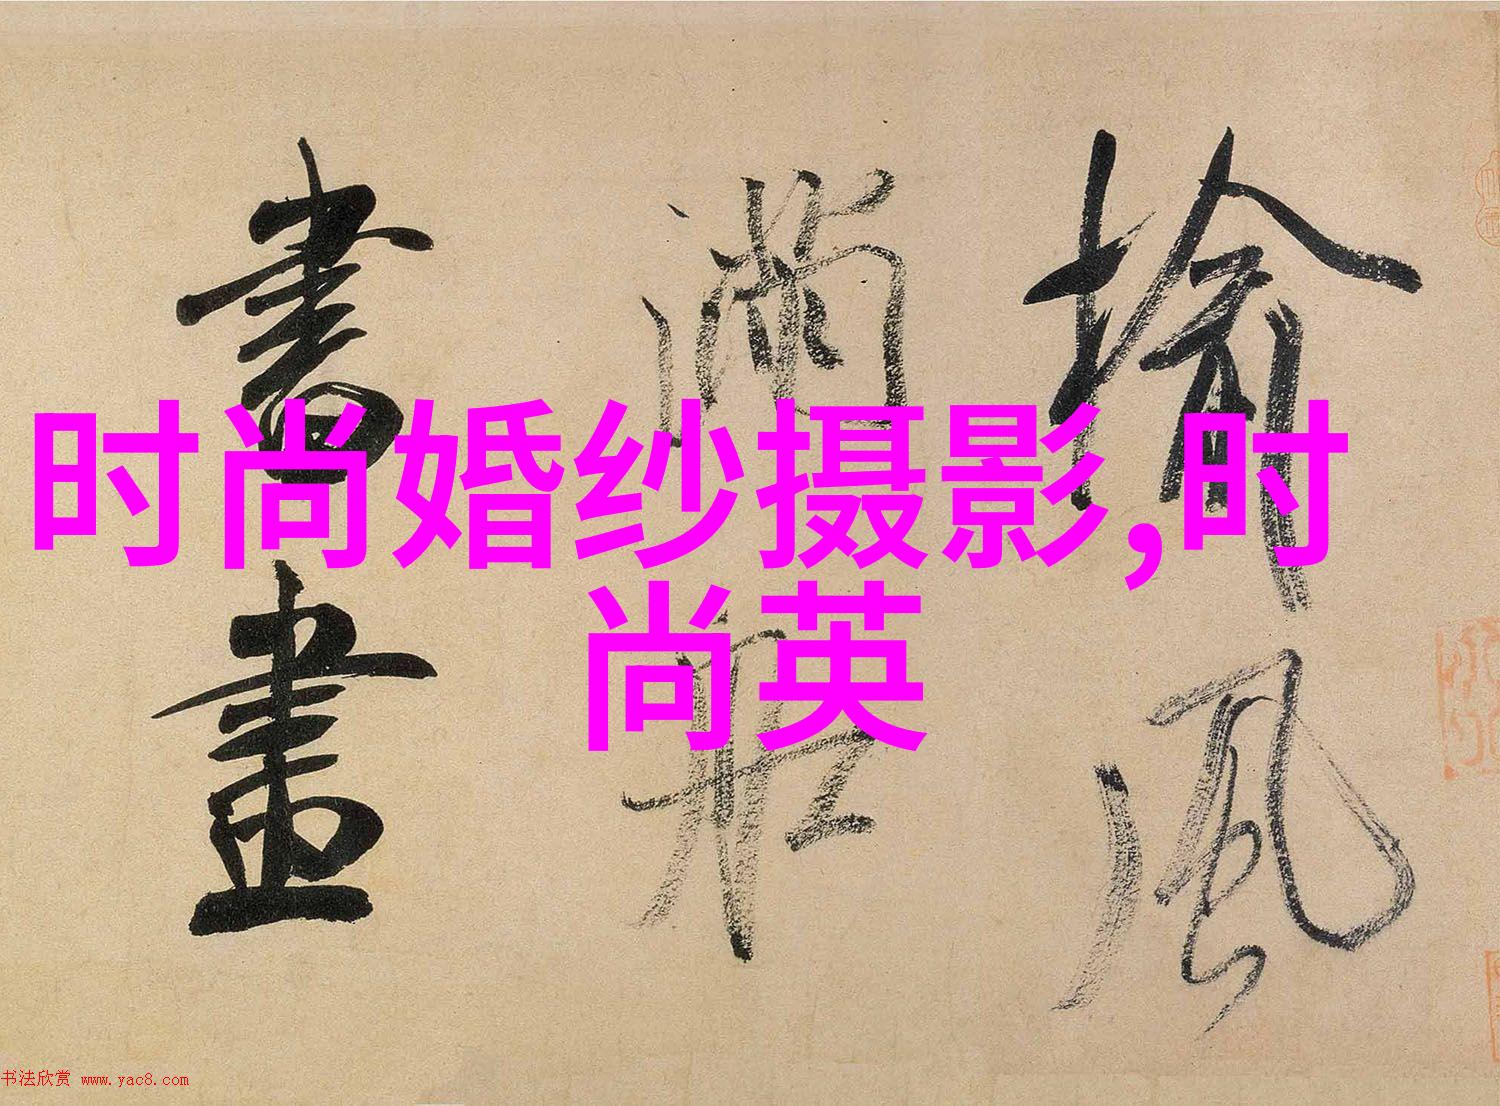 榆風
滿船
書畫
时尚婚纱摄影,时
尚英
书法欣赏 www.yac8.com